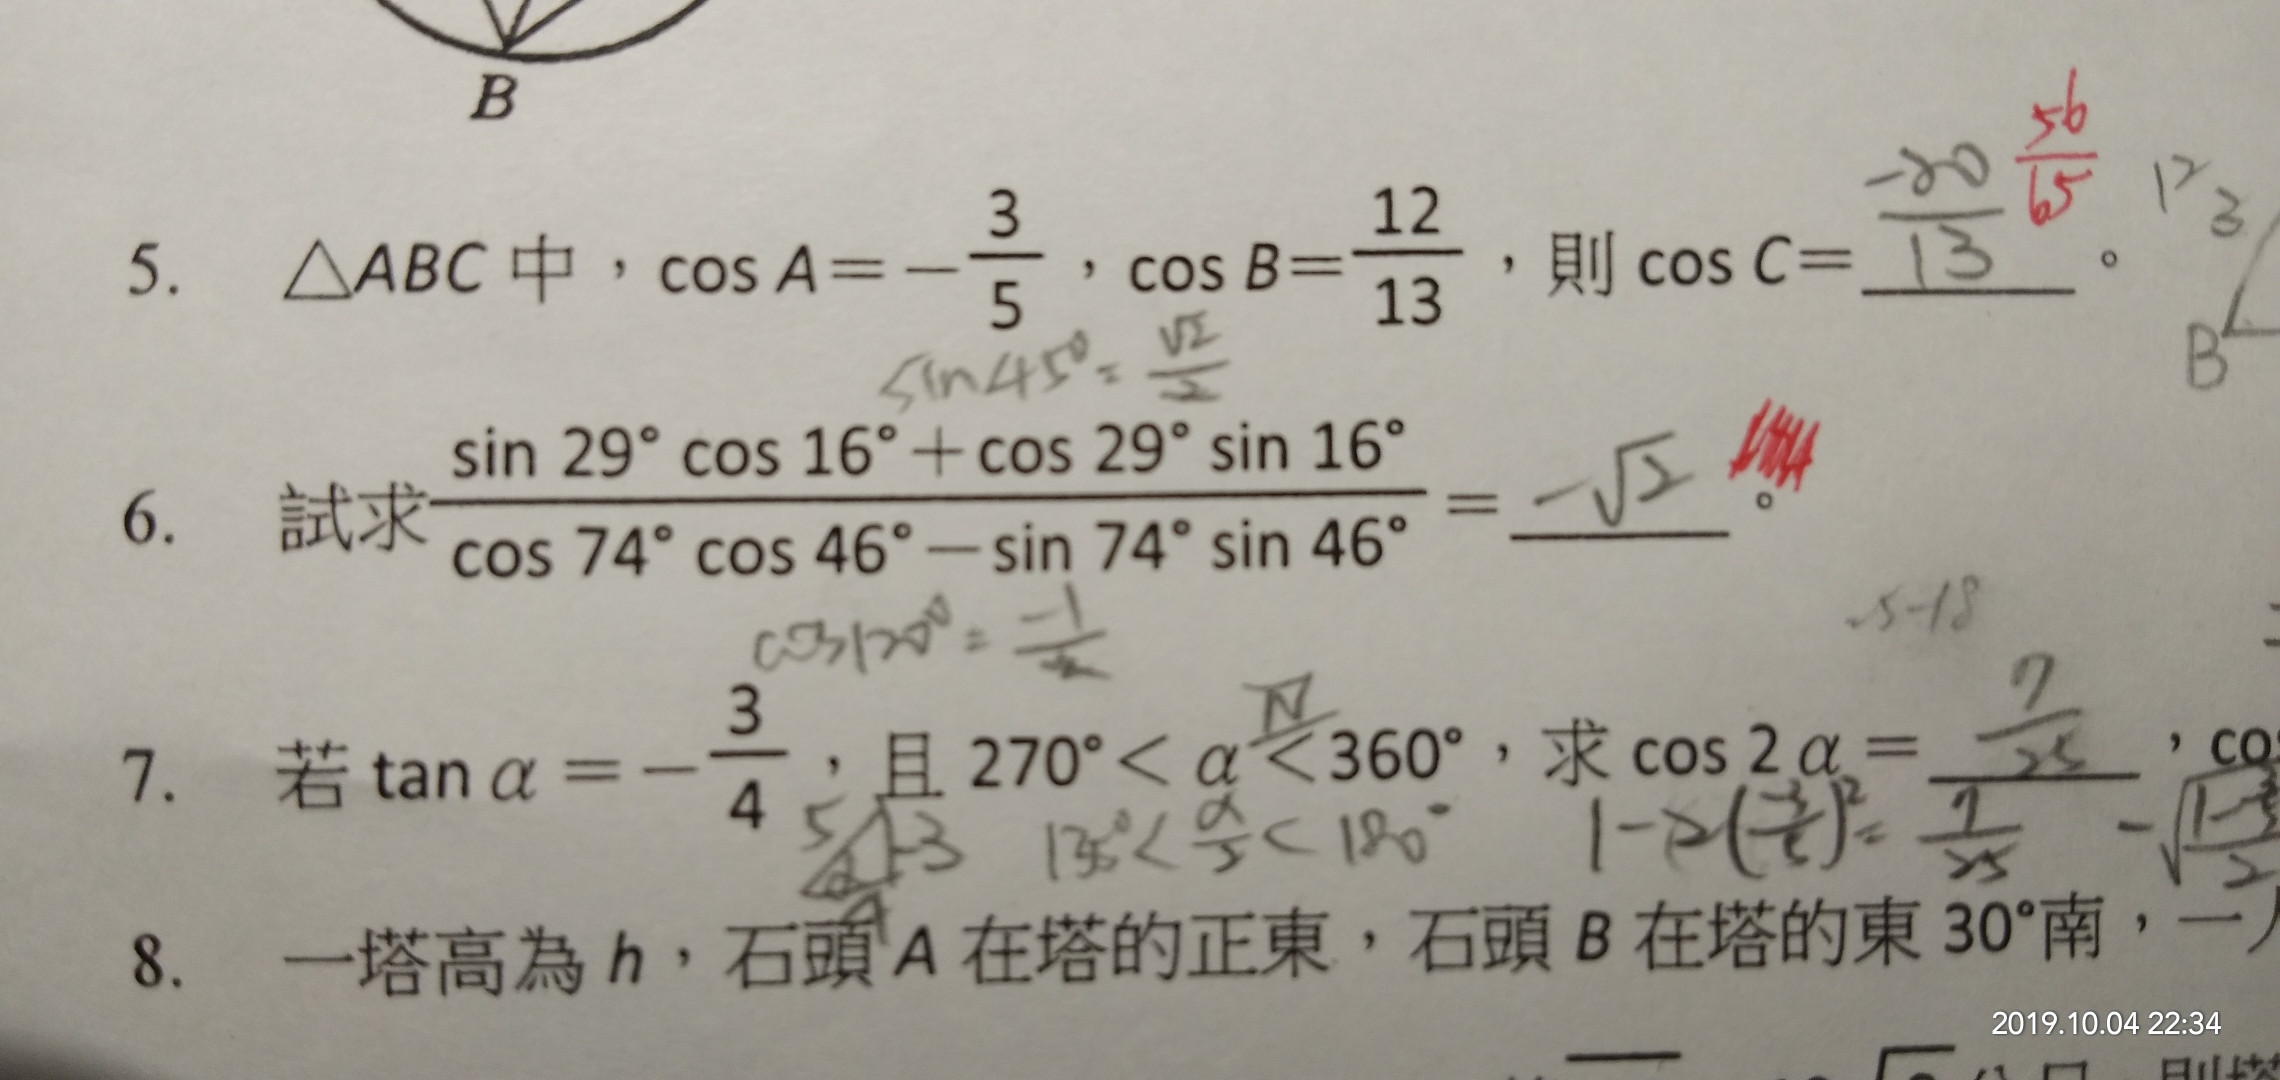 B
56/65
-20/13
12
3
5. △ABC 中，cos A=-3/5，cos B=12/13，則 cos C=____。
B
sin45°=√2/2
6. 試求 (sin 29° cos 16°+cos 29° sin 16°)/(cos 74° cos 46°-sin 74° sin 46°) = -√2。
cos120°=-1/2
7. 若 tan α=-3/4，且 270°<α<360°，求 cos 2α=7/25，
5 -3 135°<α/2<180° 1-2(-3/5)²=7/25
8. 一塔高為 h，石頭 A 在塔的正東，石頭 B 在塔的東 30°南，一
2019.10.04 22:34